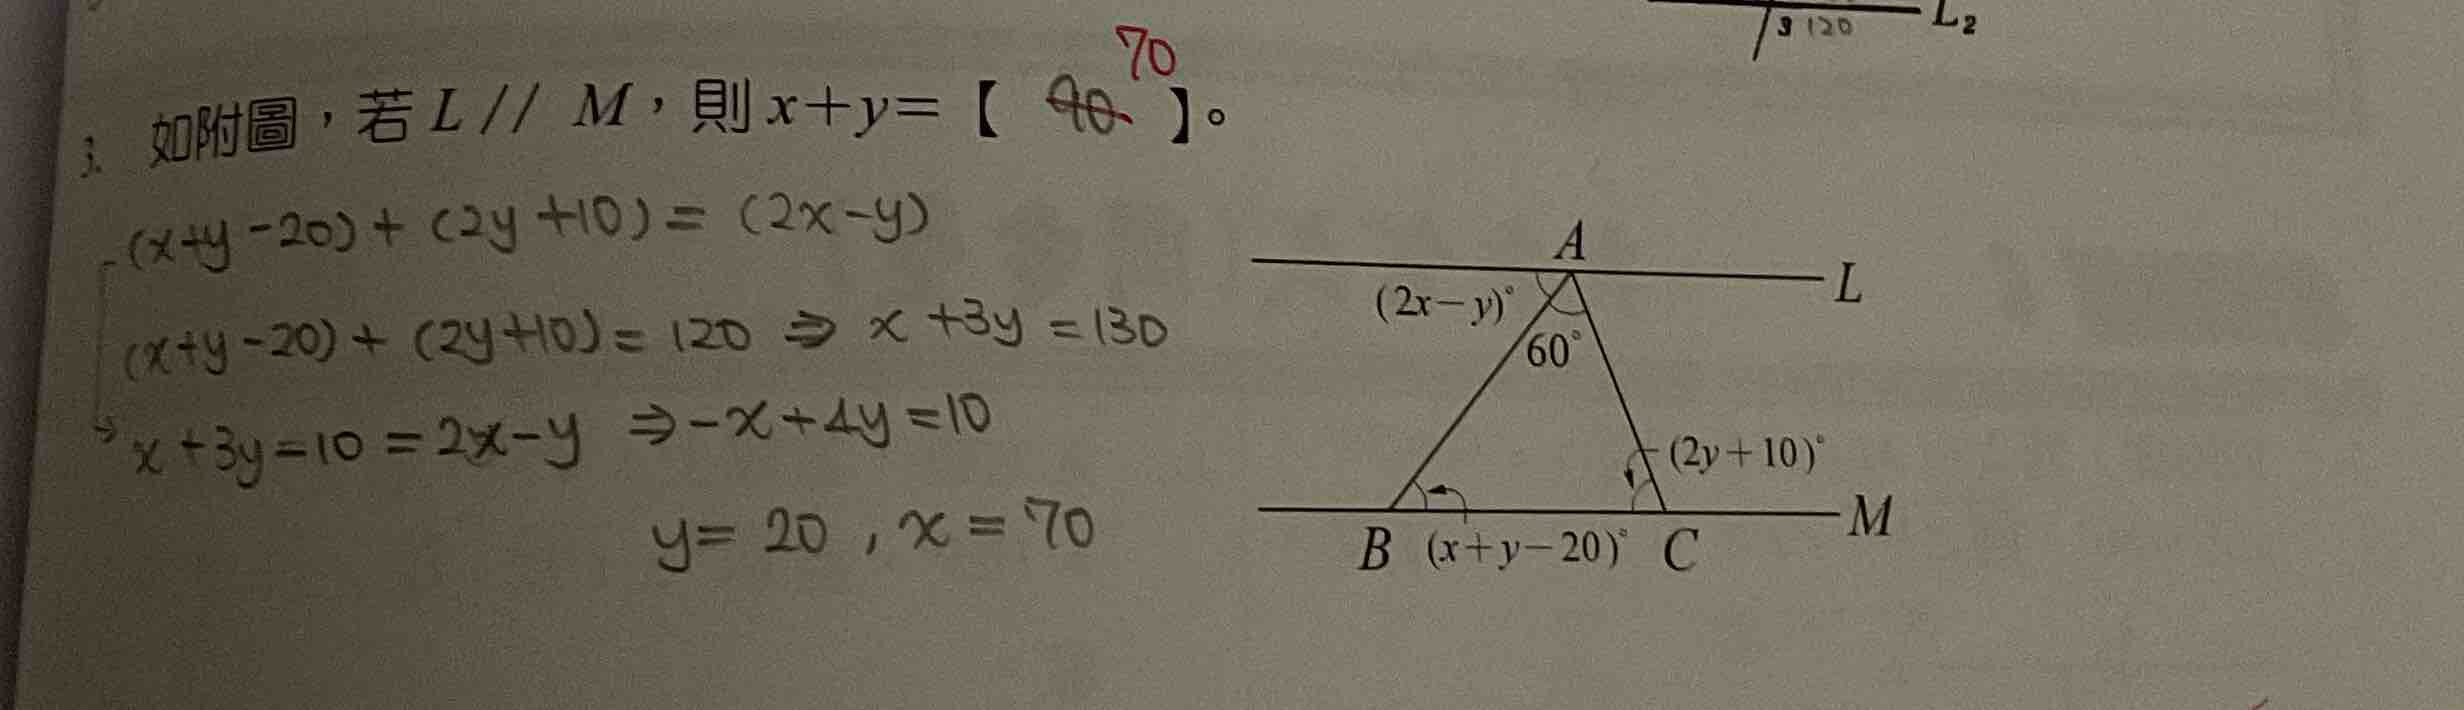 L₂
3 120
70
3. 如附圖，若 L // M，則 x+y=【 90 】。
(x+y-20)+(2y+10)=(2x-y)
(x+y-20)+(2y+10)=120 ⇒ x+3y=130
→ x+3y-10=2x-y ⇒ -x+4y=10
y=20 , x=70
A
L
(2x-y)°
60°
(2y+10)°
M
B (x+y-20)° C